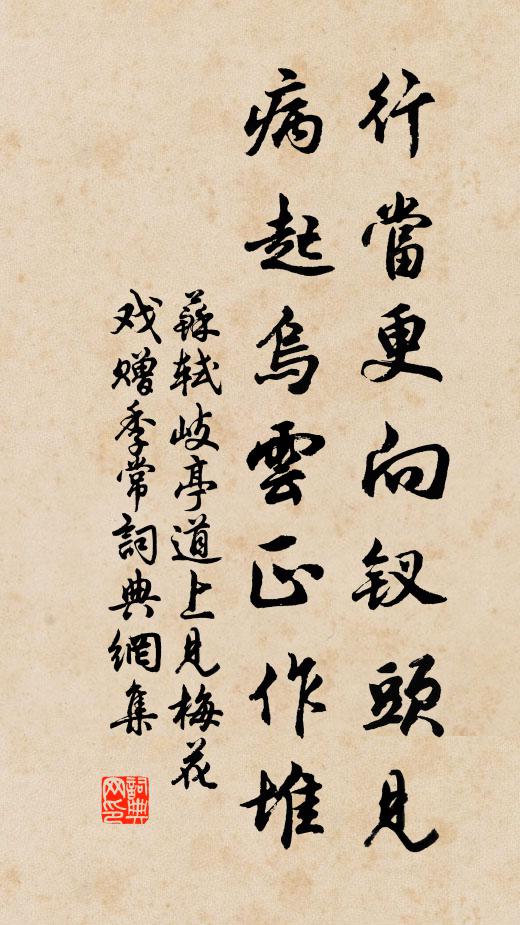 行當更向釵頭見
病起烏雲正作堆
蘇軾岐亭道上見梅花
戏贈季常詞典網集
詞典网印